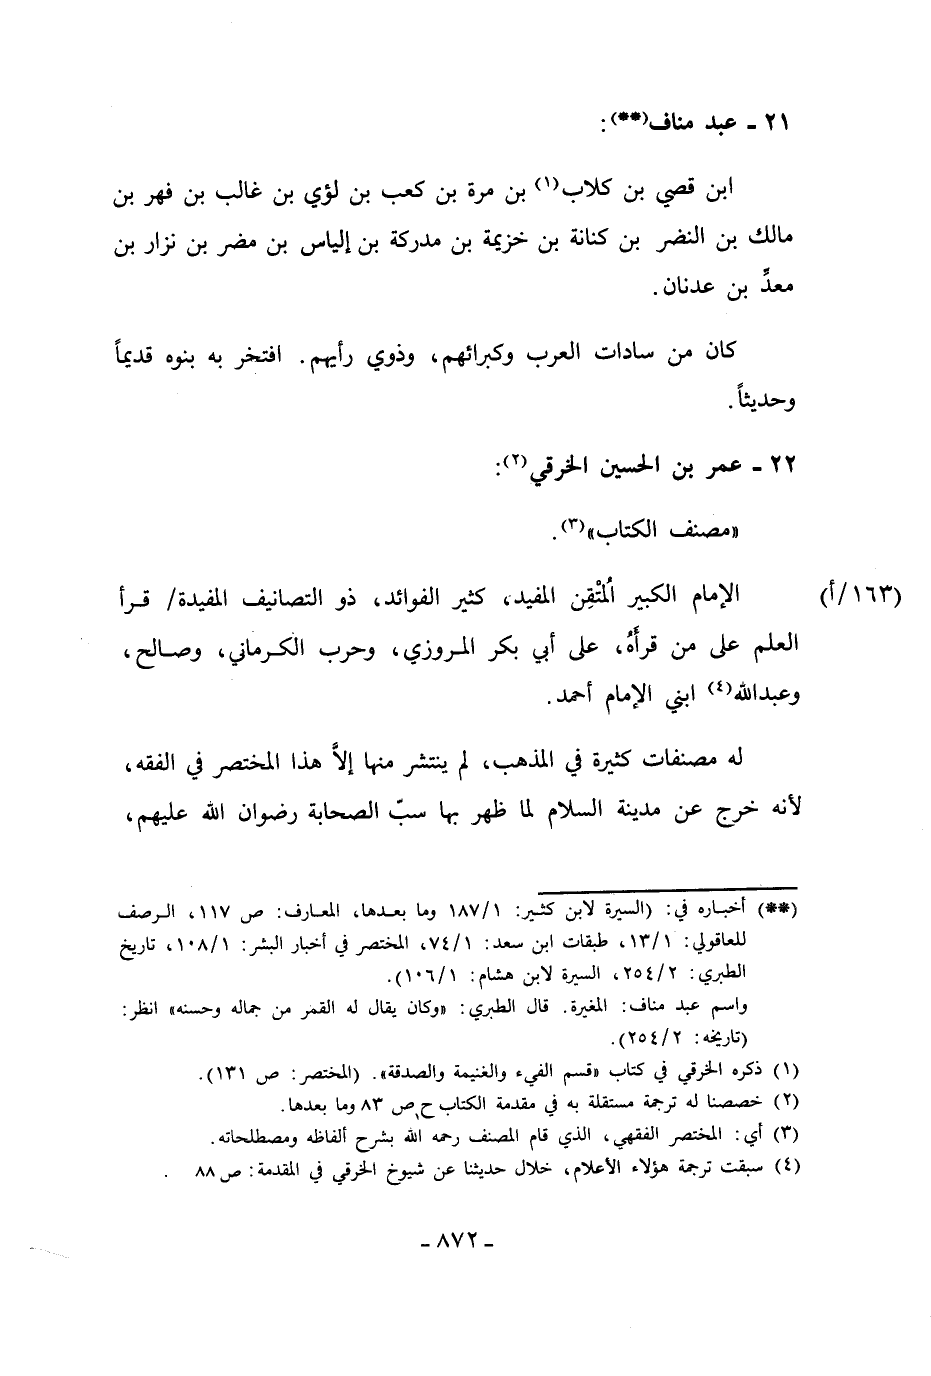 ٢١ ـ عبد مناف(**):
ابن قصي بن كلاب(١) بن مرة بن كعب بن لؤي بن غالب بن فهر بن
مالك بن النضر بن كنانة بن خزيمة بن مدركة بن إلياس بن مضر بن نزار بن
معدِّ بن عدنان.
كان من سادات العرب وكبرائهم، وذوي رأيهم. افتخر به بنوه قديماً
وحديثاً.
٢٢ ـ عمر بن الحسين الخرقي(٢):
«مصنف الكتاب»(٣).
(١٦٣/أ) الإمام الكبير اُلمتْقِن المفيد، كثير الفوائد، ذو التصانيف المفيدة/ قـرأ
العلم على من قرأَهُ، على أبي بكر المـروزي، وحرب الكـرماني، وصـالح،
وعبدالله(٤) ابني الإمام أحمد.
له مصنفات كثيرة في المذهب، لم ينتشر منها إلاَّ هذا المختصر في الفقه،
لأنه خرج عن مدينة السلام لما ظهر بها سبّ الصحابة رضوان الله عليهم،
(**) أخبـاره في: (السيرة لابن كثير: ١٨٧/١ وما بعـدها، المعـارف: ص ١١٧، الـرصف
للعاقولي: ١٣/١، طبقات ابن سعد: ٧٤/١، المختصر في أخبار البشر: ١٠٨/١، تاريخ
الطبري: ٢٥٤/٢، السيرة لابن هشام: ١٠٦/١).
واسم عبد مناف: المغيرة. قال الطبري: «وكان يقال له القمر من جماله وحسنه» انظر:
(تاريخه: ٢٥٤/٢).
(١) ذكره الخرقي في كتاب «قسم الفيء والغنيمة والصدقة». (المختصر: ص ١٣١).
(٢) خصصنا له ترجمة مستقلة به في مقدمة الكتاب ح، ص ٨٣ وما بعدها.
(٣) أي: المختصر الفقهي، الذي قام المصنف رحمه الله بشرح ألفاظه ومصطلحاته.
(٤) سبقت ترجمة هؤلاء الأعلام، خلال حديثنا عن شيوخ الخرقي في المقدمة: ص ٨٨ .
ـ ٨٧٢ ـ